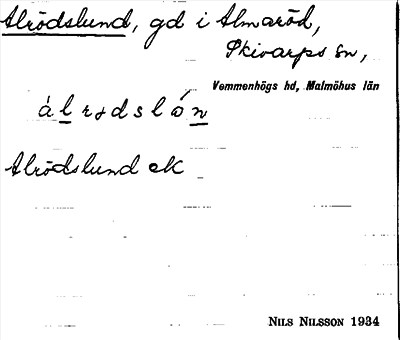 Alrödslund, gd i Almaröd,
Skivarps sn,
Vemmenhögs hd, Malmöhus län
Alrödslund ek
NILS NILSSON 1934